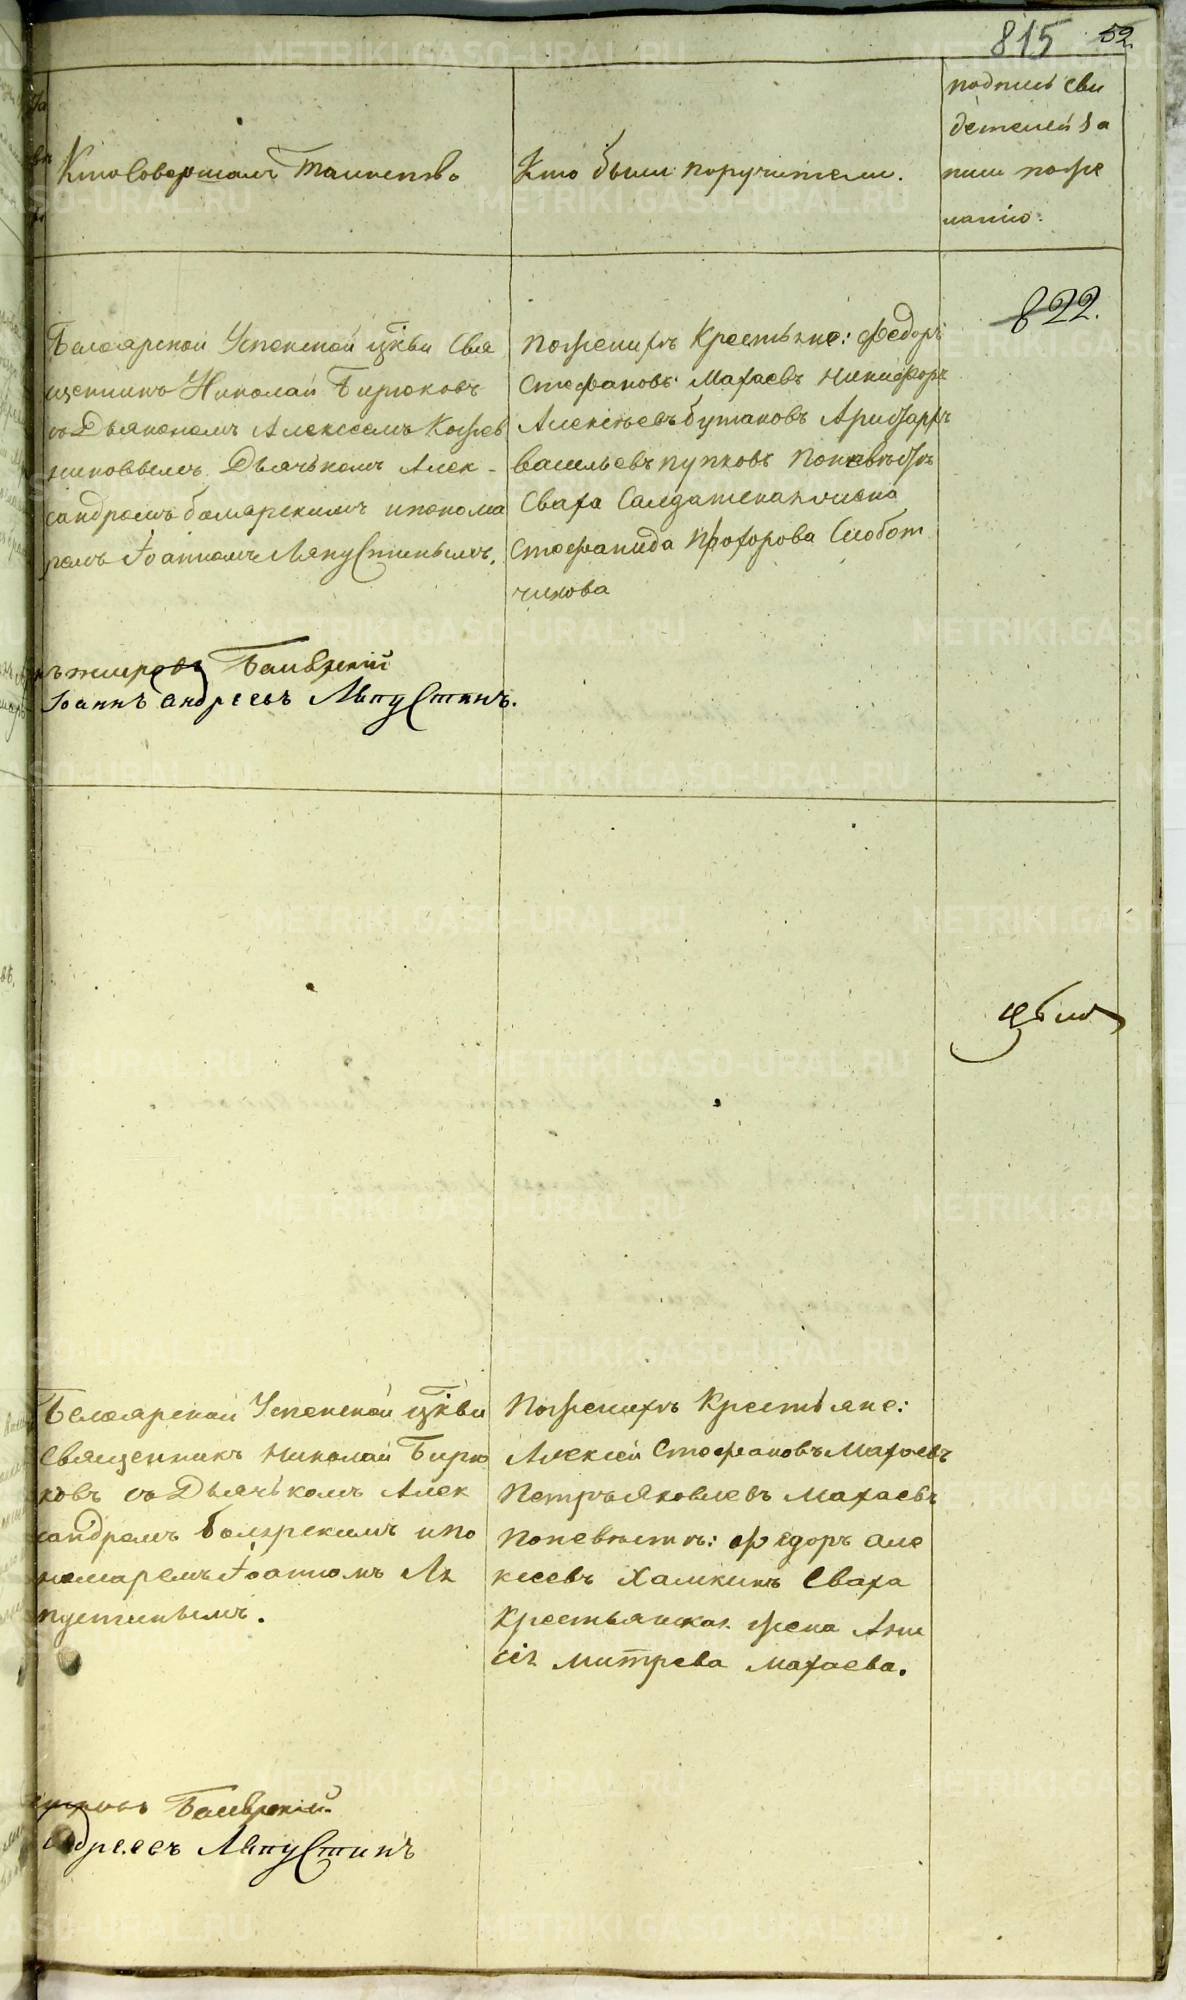 815 52
Кто Совершалъ Таинство
Кто были поручители.
подпись сви
детелей за
писи по же
ланію:
822.
Белоярской Успенской цркви Свя
щенникъ Николай Бирюковъ
съ Дьякономъ Алексеемъ Кожев
никовымъ Дьячькомъ Алек-
сандромъ боярскимъ и понома
ремъ Іоанномъ Ляпустинымъ.
По женихѣ Крестьяне: Федоръ
Стефановъ Махаевъ Никифоръ
Алексѣевъ бутаковъ
васильевъ пупковъ По невѣстѣ
Сваха Салдатская жена
Стефанида Прохорова Слобот
чикова
Боярскій
Іоаннъ андреевъ Ляпустинъ.
Белоярской Успенской цркви
Священникъ Николай Бирю
ковъ съ Дьячькомъ Алек
сандромъ боярскимъ и по
номаремъ Іоанномъ Ля
пустинымъ.
По женихѣ Крестьяне:
Алексѣй Стефановъ Махаевъ
Петръ Яковлевъ Махаевъ
По невѣстѣ: федоръ але
ксеевъ Халкинъ Сваха
Крестьянская жена Ани
сія митрева махаева.
Боярскій.
андреевъ Ляпустинъ
METRIKI.GASO-URAL.RU